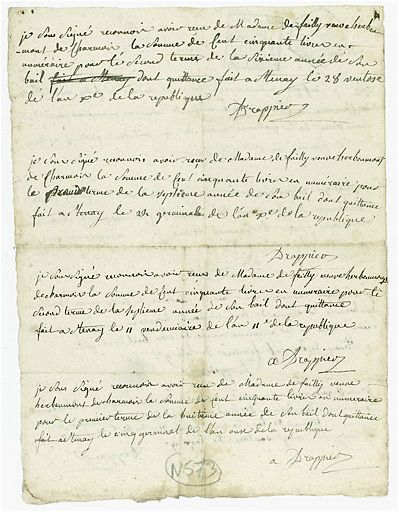 je Sous Signé reconnoir avoir reçu de Madame de failly veuve herbeu
mont de Charmoir la Somme de Cent Cinquante livres en
numéraire pour le Second terme de la Sixieme année de Son
bail fait a Stenay dont quittance fait a Stenay le 28 ventose
de l'an xe de la republique
Drappier
je Sous Signé reconnoir avoir reçu de Madame de failly veuve herbeumont
de Charmoir la Somme de Cent Cinquante livres en numéraire pour
le premier terme de la Septieme année de Son bail dont quittance
fait a Stenay le 28 germinal de l'an xe de la republique
Drappier
je Sous Signé reconnoir avoir reçu de Madame de failly veuve herbeumont
de charmoir la Somme de Cent Cinquante livres en numeraire pour le
Second terme de la Septieme année de Son bail dont quittance
fait a Stenay le 11 vendemiaire de l'an 11e de la republique
a Drappier
je Sous Signé reconnoir avoir reçu de Madame de failly veuve
herbeumont de charmoir la Somme de Cent cinquante livres en numeraire
pour le premier terme de la huitieme année de Son bail dont quittance
fait a Stenay le cinq germinal de l'an onze de la republique
a Drappier
N573